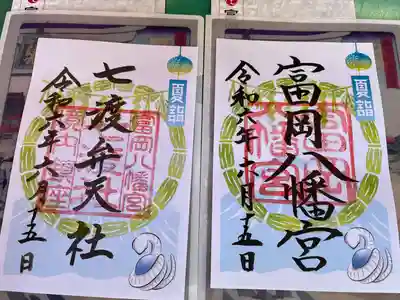 夏詣
七渡弁天社
令和六年六月十五日
富岡八幡宮
夏詣
富岡八幡宮
令和六年六月十五日
富岡八幡宮